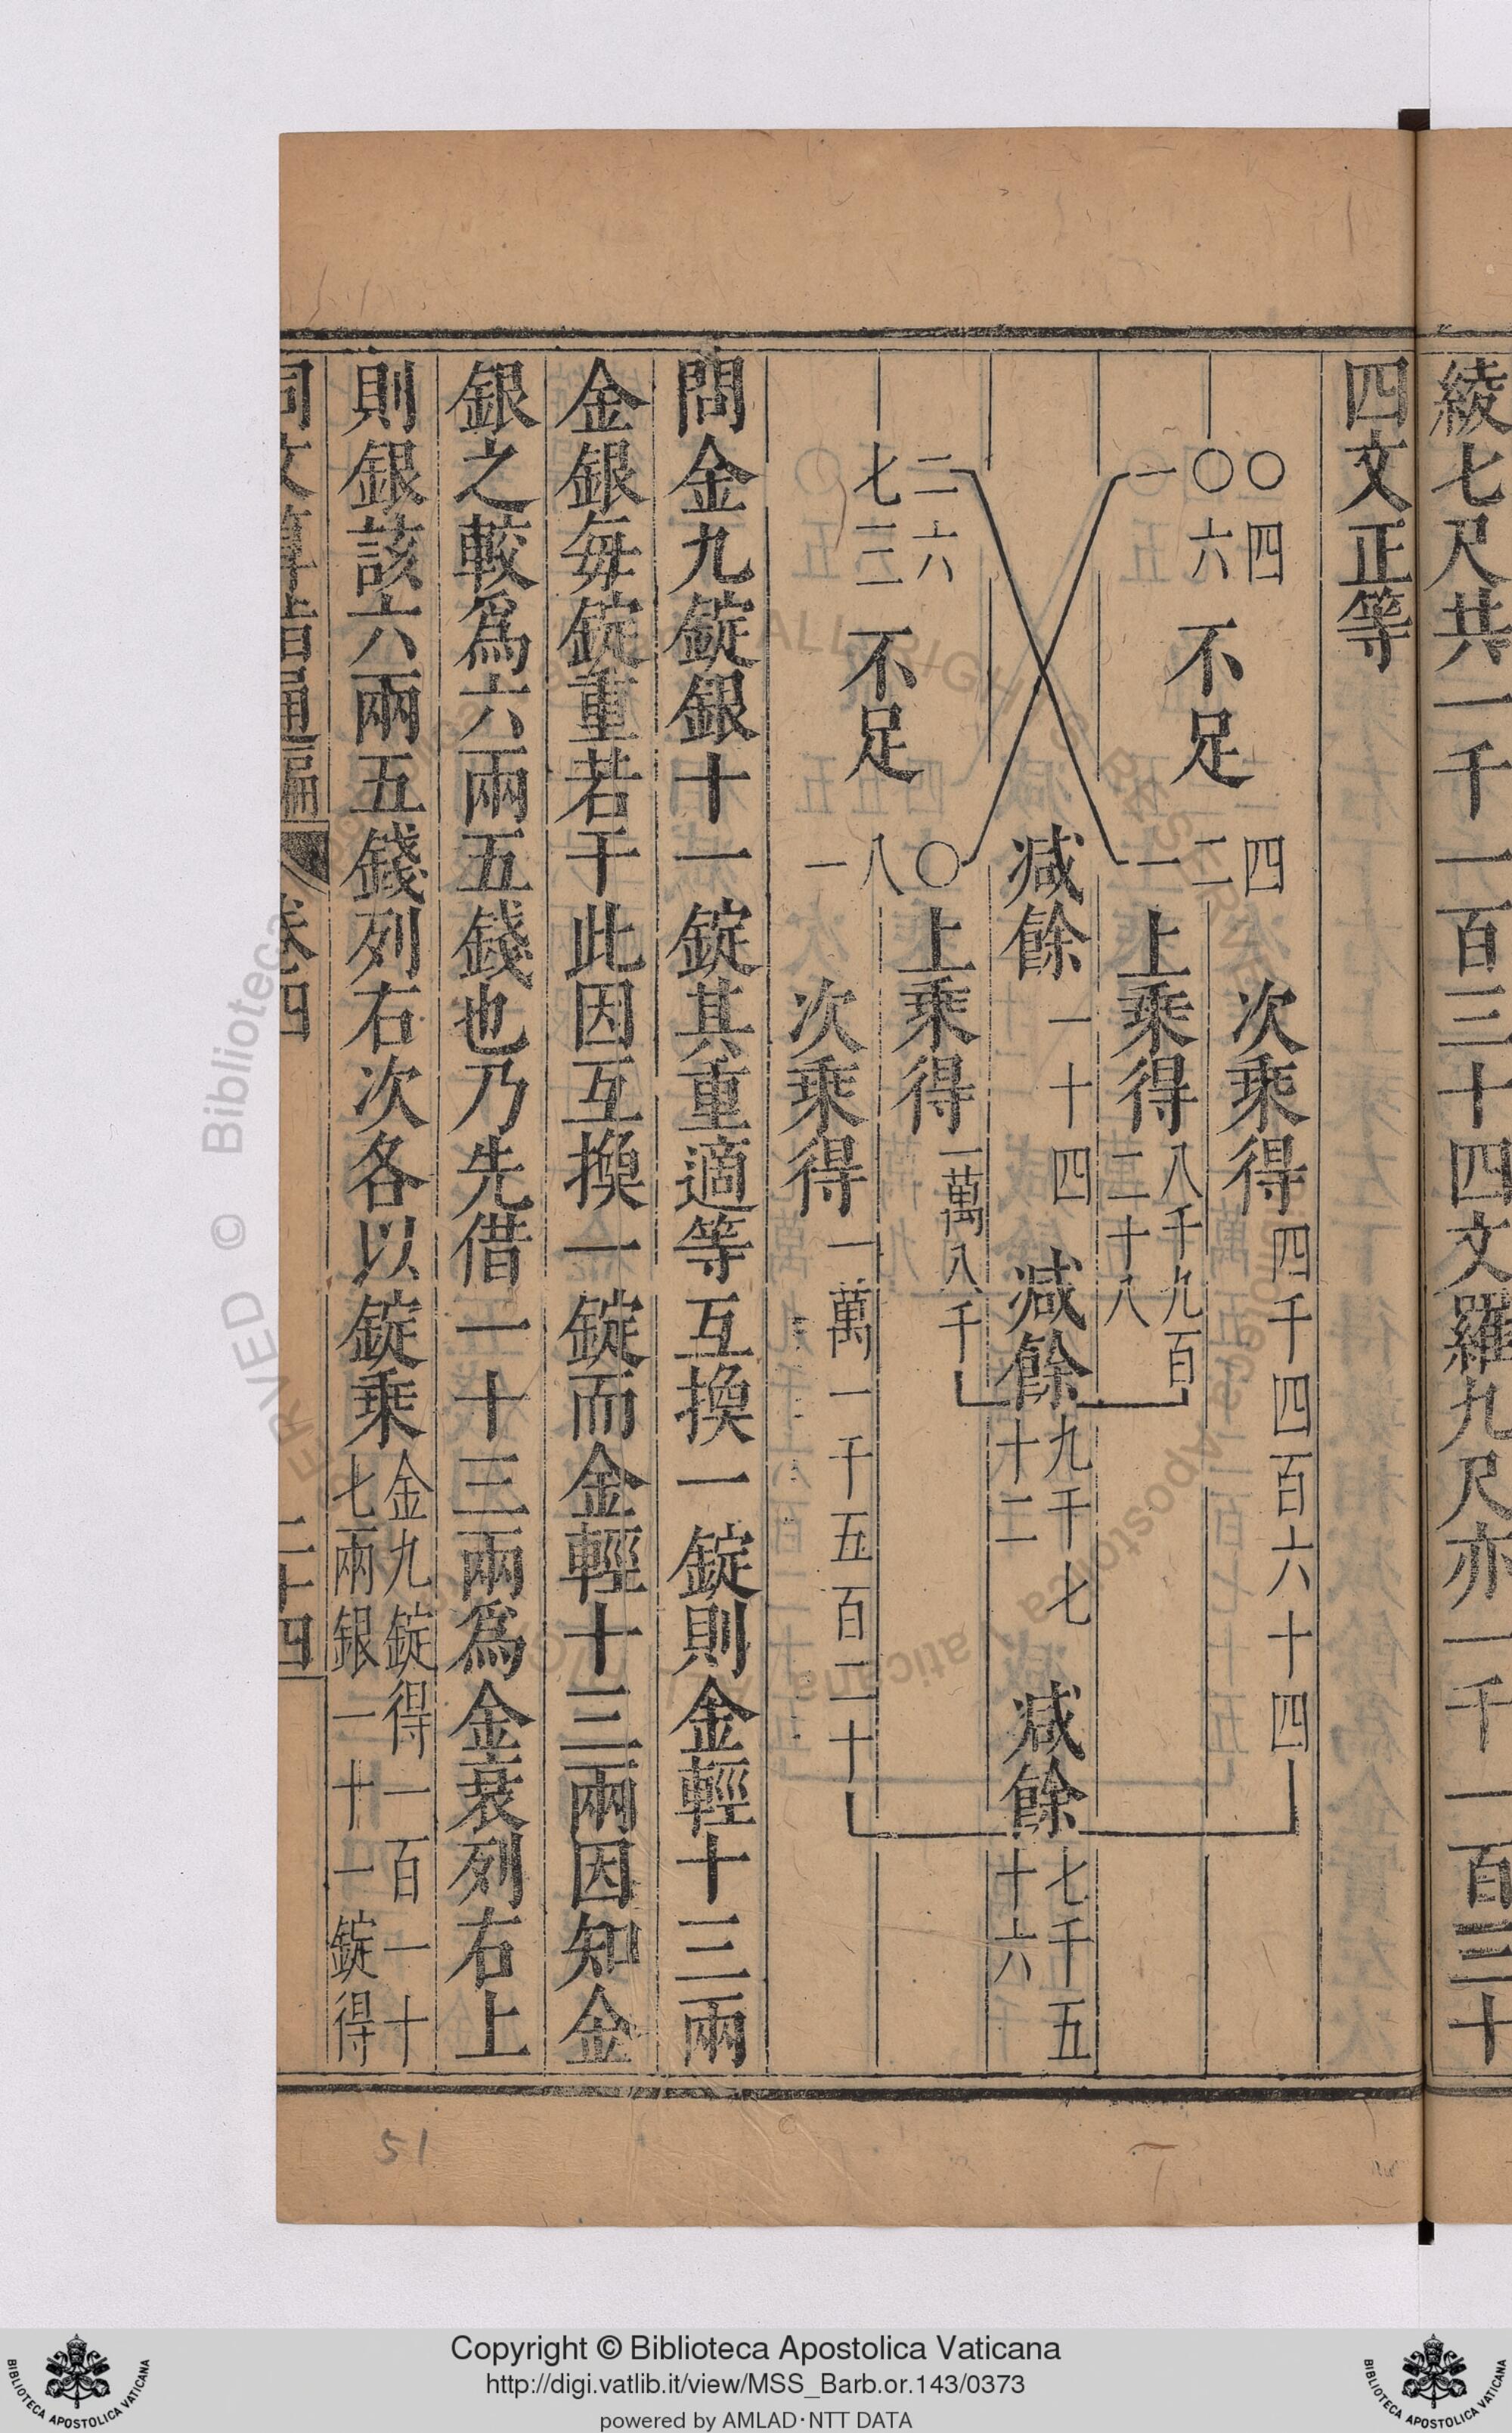 綾七尺共一千一百三十四文羅九尺亦一千一百三十
四文正等
一〇〇
六四
不足
一二四
次乘得四千四百六十四
上乘得八千九百二十八
減餘一十四
減餘九千七十二
減餘七千五十六
二六
七二三
不足
一八〇
上乘得一萬八千
次乘得一萬一千五百二十
問金九錠銀十一錠其重適等互換一錠則金輕十三兩
金銀每錠重若干此因互換一錠而金輕十三兩因知金
銀之較爲六兩五錢也乃先借一十三兩爲金衰列右上
則銀該六兩五錢列右次各以錠乘金九錠得一百一十七兩銀一十一錠得
同文算指通編
卷四
二十四
51
Copyright © Biblioteca Apostolica Vaticana
http://digi.vatlib.it/view/MSS_Barb.or.143/0373
powered by AMLAD·NTT DATA